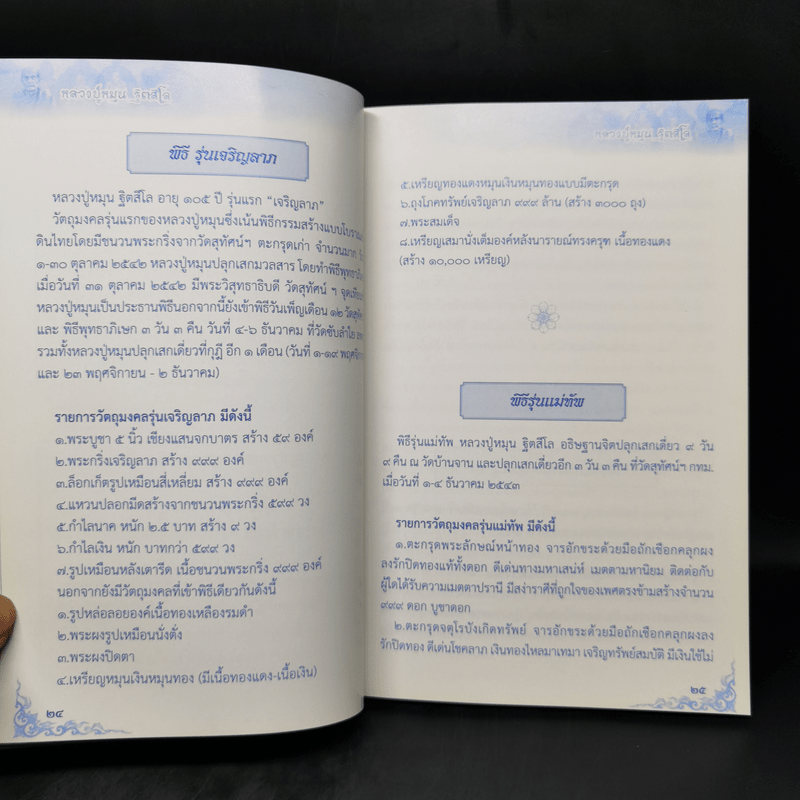 หลวงปู่หมุน ฐิตสีโล
พิธี รุ่นเจริญลาภ
หลวงปู่หมุน ฐิตสีโล อายุ ๑๐๕ ปี รุ่นแรก “เจริญลาภ”
วัตถุมงคลรุ่นแรกของหลวงปู่หมุนซึ่งเน้นพิธีกรรมสร้างแบบโบราณ
ดินไทยโดยมีชนวนพระกริ่งจากวัดสุทัศน์ฯ ตะกรุดเก่า จำนวนมาก
๑-๓๐ ตุลาคม ๒๕๔๒ หลวงปู่หมุนปลุกเสกมวลสาร โดยทำพิธีพุทธาภิ
เมื่อวันที่ ๓๑ ตุลาคม ๒๕๔๒ มีพระวิสุทธาธิบดี วัดสุทัศน์ ฯ จุดเทียน
หลวงปู่หมุนเป็นประธานพิธีนอกจากนี้ยังเข้าพิธีวันเพ็ญเดือน ๑๒ วัดสุทั
และ พิธีพุทธาภิเษก ๓ วัน ๓ คืน วันที่ ๔-๖ ธันวาคม ที่วัดซับลำใย
รวมทั้งหลวงปู่หมุนปลุกเสกเดี่ยวที่กุฏิ อีก ๑ เดือน (วันที่ ๑-๑๙ พฤศจิ
และ ๒๓ พฤศจิกายน - ๒ ธันวาคม)
รายการวัตถุมงคลรุ่นเจริญลาภ มีดังนี้
๑.พระบูชา ๕ นิ้ว เชียงแสนจกบาตร สร้าง ๕๙ องค์
๒.พระกริ่งเจริญลาภ สร้าง ๙๙๙ องค์
๓.ล็อกเก็ตรูปเหมือนสี่เหลี่ยม สร้าง ๙๙๙ องค์
๔.แหวนปลอกมีดสร้างจากชนวนพระกริ่ง ๕๙๙ วง
๕.กำไลนาค หนัก ๒.๕ บาท สร้าง ๙ วง
๖.กำไลเงิน หนัก บาทกว่า ๕๙๙ วง
๗.รูปเหมือนหลังเตารีด เนื้อชนวนพระกริ่ง ๙๙๙ องค์
นอกจากยังมีวัตถุมงคลที่เข้าพิธีเดียวกันดังนี้
๑.รูปหล่อลอยองค์เนื้อทองเหลืองรมดำ
๒.พระผงรูปเหมือนนั่งตั่ง
๓.พระผงปิดตา
๔.เหรียญหมุนเงินหมุนทอง (มีเนื้อทองแดง-เนื้อเงิน)
๒๔
หลวงปู่หมุน ฐิตสีโล
๕.เหรียญทองแดงหมุนเงินหมุนทองแบบมีตะกรุด
๖.ถุงโภคทรัพย์เจริญลาภ ๙๙๙ ล้าน (สร้าง ๓๐๐๐ ถุง)
๗.พระสมเด็จ
๘.เหรียญเสมานั่งเต็มองค์หลังนารายณ์ทรงครุฑ เนื้อทองแดง
(สร้าง ๑๐,๐๐๐ เหรียญ)
พิธีรุ่นแม่ทัพ
พิธีรุ่นแม่ทัพ หลวงปู่หมุน ฐิตสีโล อธิษฐานจิตปลุกเสกเดี่ยว ๙ วัน
๙ คืน ณ วัดบ้านจาน และปลุกเสกเดี่ยวอีก ๓ วัน ๓ คืน ที่วัดสุทัศน์ฯ กทม.
เมื่อวันที่ ๑-๔ ธันวาคม ๒๕๔๓
รายการวัตถุมงคลรุ่นแม่ทัพ มีดังนี้
๑.ตะกรุดพระลักษณ์หน้าทอง จารอักขระด้วยมือถักเชือกคลุกผง
ลงรักปิดทองแท้ทั้งดอก ดีเด่นทางมหาเสน่ห์ เมตตามหานิยม ติดต่อกับ
ผู้ใดได้รับความเมตตาปรานี มีสง่าราศีที่ถูกใจของเพศตรงข้ามสร้างจำนวน
๙๙๙ ดอก บูชาดอก
๒.ตะกรุดจตุโรบังเกิดทรัพย์ จารอักขระด้วยมือถักเชือกคลุกผงลง
รักปิดทอง ดีเด่นโชคลาภ เงินทองไหลมาเทมา เจริญทรัพย์สมบัติ มีเงินใช้ไม่
๒๕